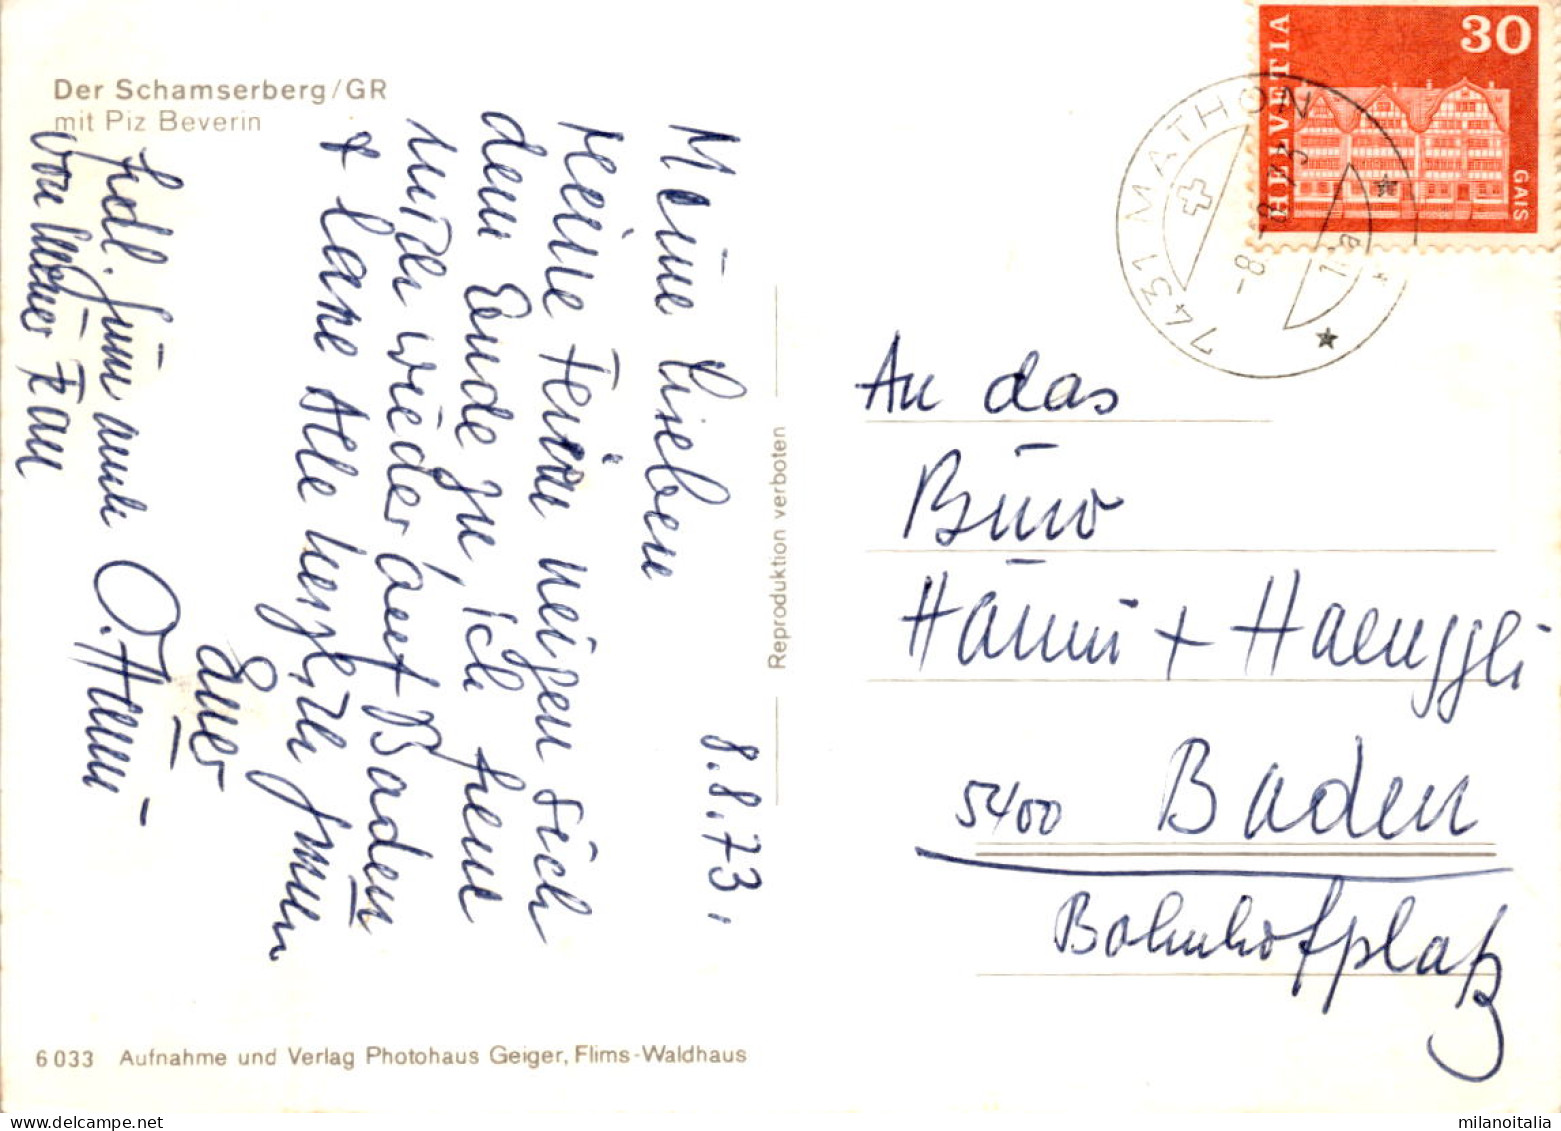 Der Schamserberg/GR
mit Piz Beverin
8.8.73.
Meine Lieben
Meine Ferien neigen sich
dem Ende zu, ich freue
mich wieder auf Baden
& lasse Alle herzlich grüssen
Euer
O. Hänni
von meiner Frau
Reproduktion verboten
6033 Aufnahme und Verlag Photohaus Geiger, Flims-Waldhaus
HELVETIA
30
GAIS
7431 MATHON
-8.8.73
An das
Büro
Hänni + Haenggli
5400 Baden
Bahnhofplatz
milanoitalia